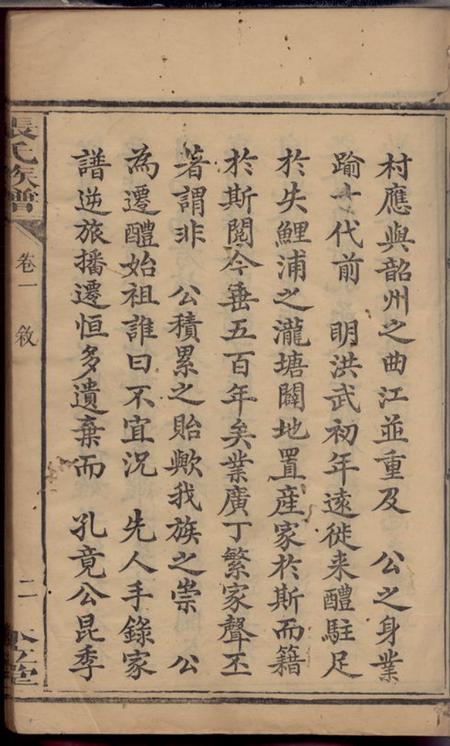 村應與韶州之曲江並重及　公之身業
踰十代前　明洪武初年遠徙来醴駐足
於失鯉浦之瀧塘闢地置産家於斯而籍
於斯閱今垂五百年矣業廣丁繁家聲丕
著謂非　公積累之貽歟我族之崇　公
為遷醴始祖誰曰不宜況　先人手錄家
譜逆旅播遷恒多遺棄而　孔竟公昆季
張氏族譜
卷一　敘
二